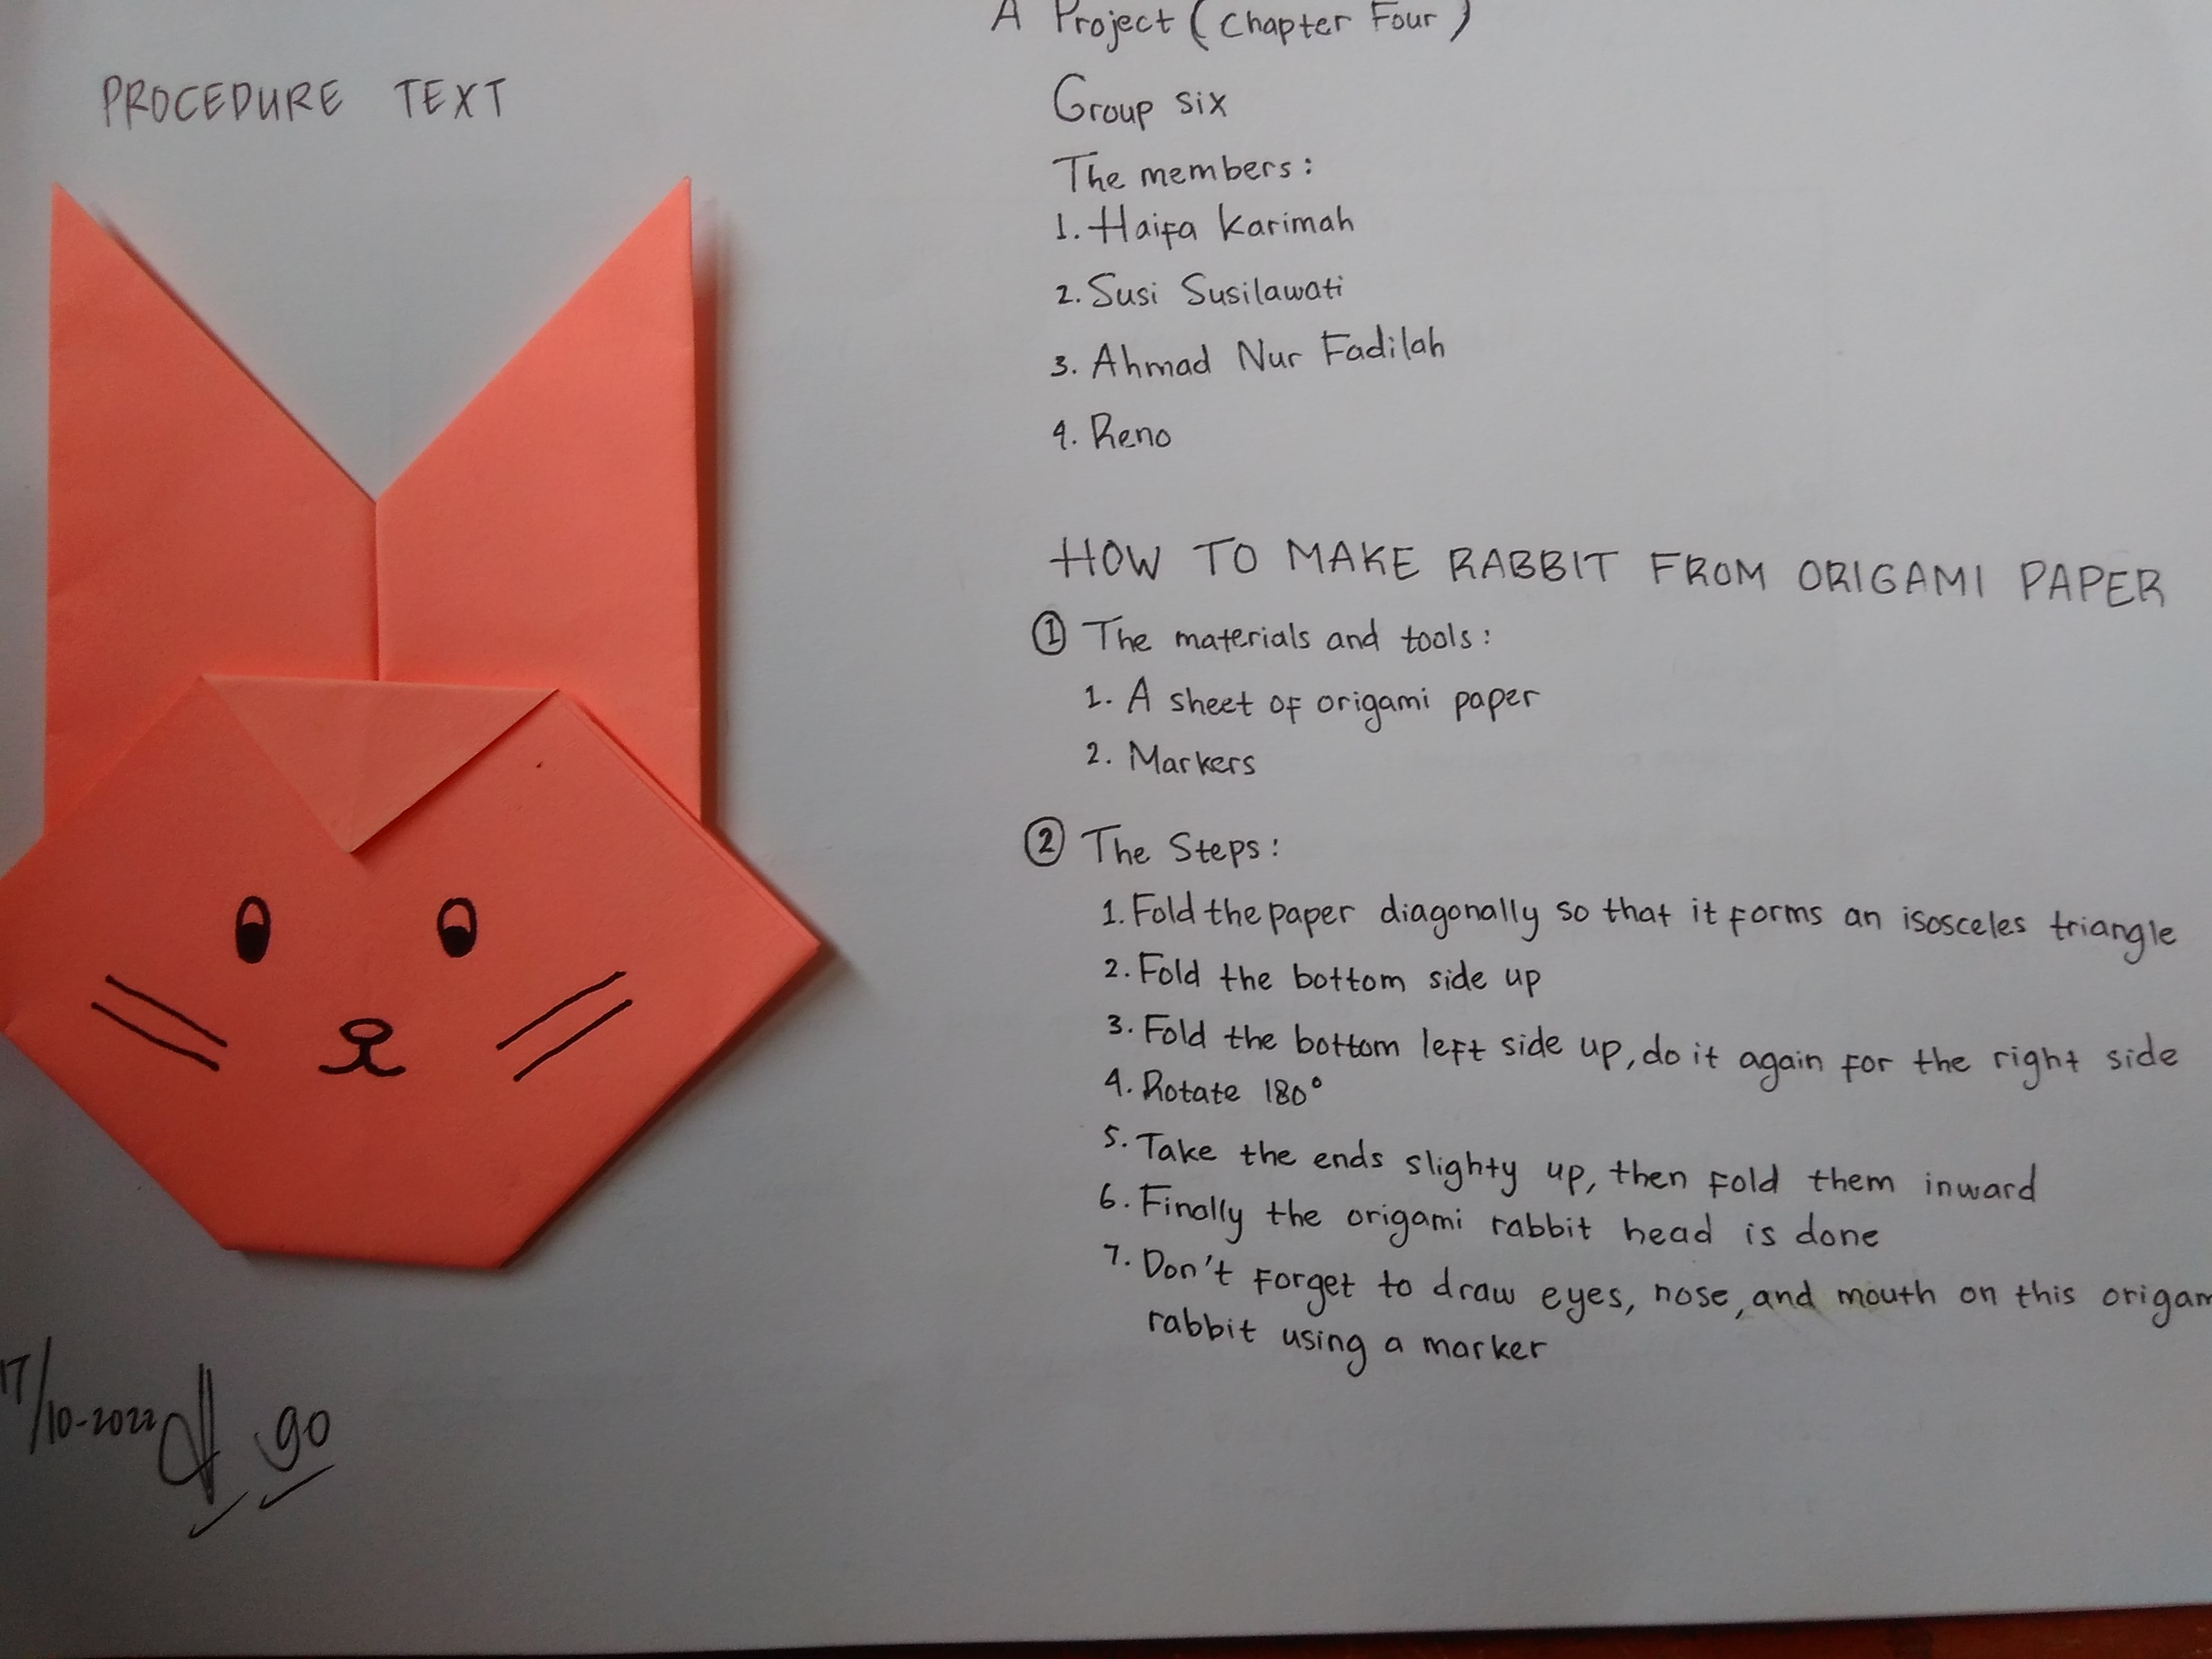 A Project (Chapter Four)
PROCEDURE TEXT
Group six
The members:
1. Haifa Karimah
2. Susi Susilawati
3. Ahmad Nur Fadilah
4. Reno
HOW TO MAKE RABBIT FROM ORIGAMI PAPER
① The materials and tools:
1. A sheet of origami paper
2. Markers
② The Steps:
1. Fold the paper diagonally so that it forms an isosceles triangle
2. Fold the bottom side up
3. Fold the bottom left side up, do it again for the right side
4. Rotate 180°
5. Take the ends slighty up, then fold them inward
6. Finally the origami rabbit head is done
7. Don't forget to draw eyes, nose, and mouth on this origam
rabbit using a marker
17/10-2022 90